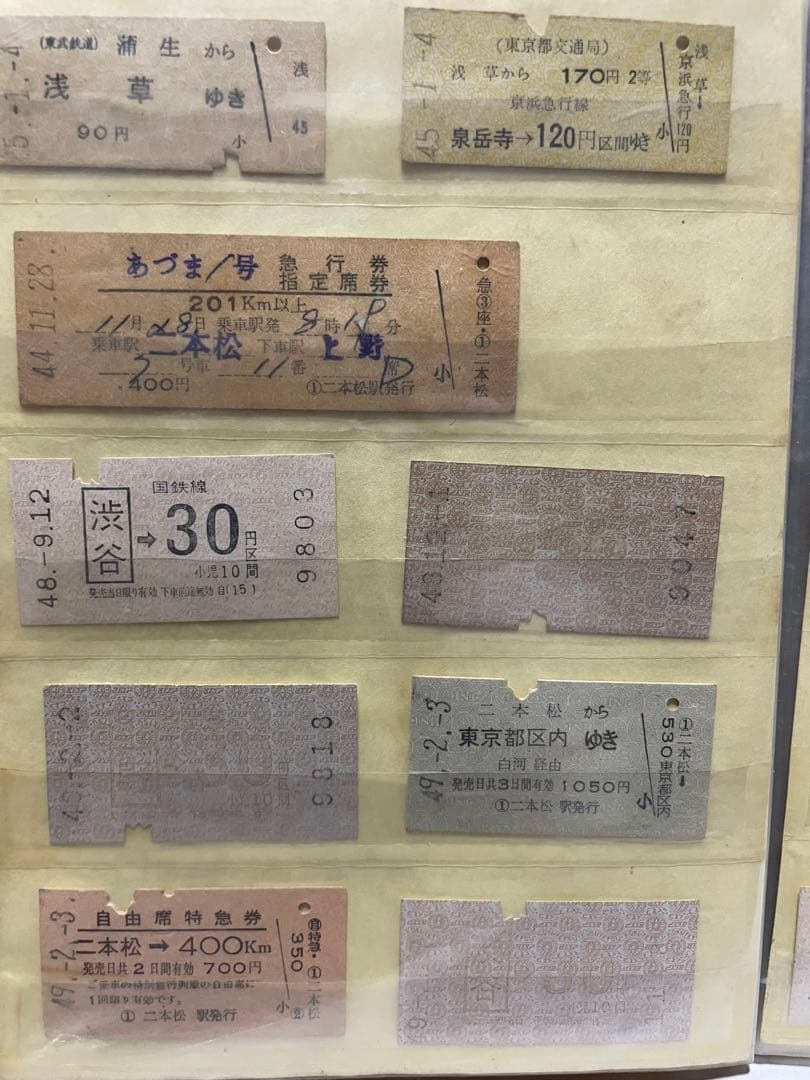 (東武鉄道) 蒲生 から
浅草 ゆき
90円
小
5.-1.-4
浅
45
(東京都交通局)
浅草から 170円 2等
京浜急行線
泉岳寺→120円区間ゆき
小
45.-1.-4
浅草→
京浜急行
120円
あづま1号 急行券
指定席券
201Km以上
11月28日 乗車駅発 8時18分
乗車駅 二本松 下車駅 上野
号車 11番 D席
400円 ①二本松駅発行
小
44.11.28.
急③座・①二本松
国鉄線
渋谷 ➡ 30円区間
小児10
発売当日限り有効 下車前途無効 自(15)
48.-9.12
9803
9818
10
二本松 から
東京都区内 ゆき
白河 経由
発売日共3日間有効 1050円
①二本松 駅発行
小
49.-2.-3
①二本松→
530東京都区内
自由席特急券
二本松→400Km
発売日共2日間有効 700円
ご乗車の特別急行列車の自由席に
1回限り有効です。
① 二本松 駅発行
小
49.-2.-3.
自特急・①二本松
350
②
谷
10円
49.-